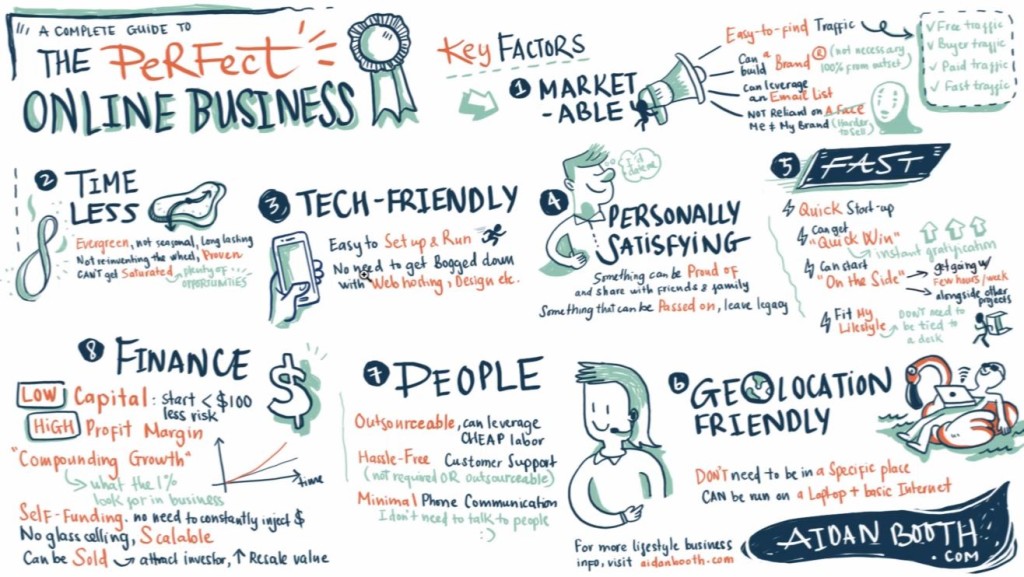 A COMPLETE GUIDE TO
THE PERFECT
ONLINE BUSINESS
Key FACTORS
1 MARKET
-ABLE
Easy-to-find Traffic
Can build a Brand ® (not necessary 100% from outset)
can leverage
an Email List
NOT Reliant on A Face
Me & My Brand (Harder to sell)
✓ Free traffic
✓ Buyer traffic
✓ Paid traffic
✓ Fast traffic
2 TIME
LESS
Evergreen, not seasonal, Long lasting
Not reinventing the wheel, Proven
CAN'T get Saturated → plenty of
OPPORTUNITIES
3 TECH-FRIENDLY
Easy to Set up & Run
No need to get Bogged down
with Web hosting, Design etc.
4 PERSONALLY
SATISFYING
I'd
Something can be Proud of
and share with friends & family
Something that can be Passed on, leave legacy
5 FAST
Quick Start-up
Can get
"Quick Win"
instant gratification
Can start
"On the Side"
getting going w/
Few hours/week
alongside other
projects
Fit My
Lifestyle
DON'T need to
be tied to
a desk
6 GEOLOCATION
FRIENDLY
DON'T need to be in a Specific place
CAN be run on a Laptop + basic Internet
7 PEOPLE
Outsourceable, can leverage
CHEAP labor
Hassle-Free Customer Support
(not required OR outsourceable)
Minimal Phone Communication
I don't need to talk to people
:)
8 FINANCE
$
LOW Capital: start < $100
less risk
HIGH Profit Margin
"Compounding Growth"
what the 1%
look for in business
time
Self-Funding. no need to constantly inject $
No glass ceiling, Scalable
Can be Sold → attract investor, ↑ Resale value
For more lifestyle business
info, visit aidanbooth.com
AIDAN BOOTH
.COM